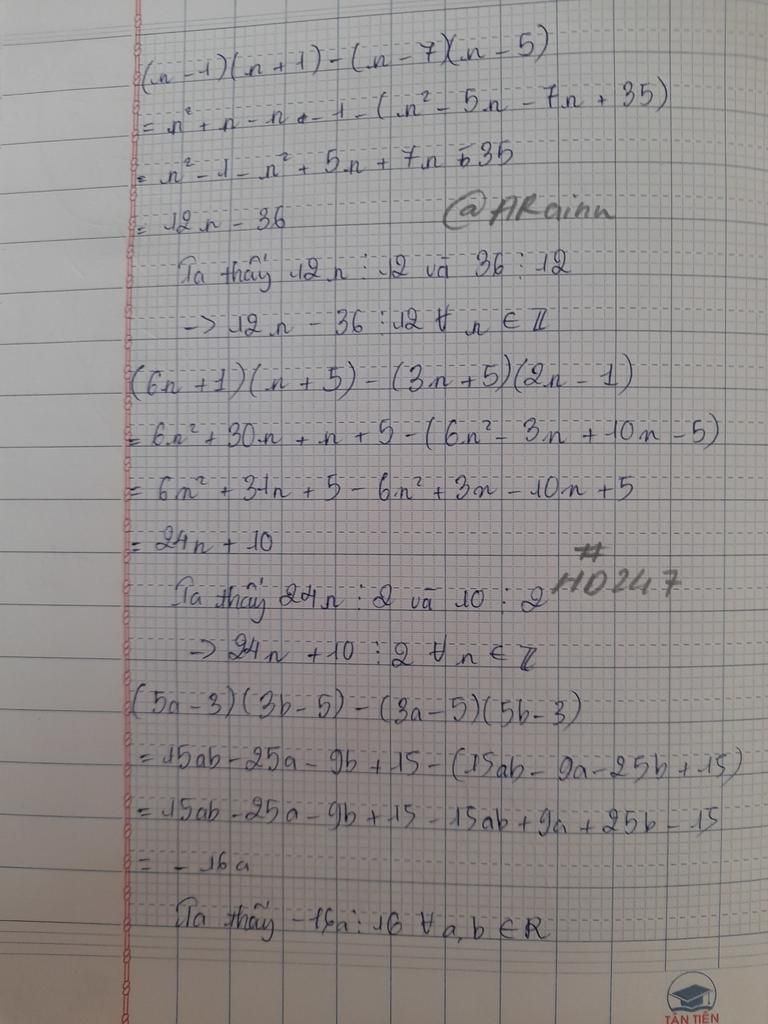 (n - 1)(n + 1) - (n - 7)(n - 5)
= n² + n - n - 1 - (n² - 5n - 7n + 35)
= n² - 1 - n² + 5n + 7n - 35
= 12n - 36
@ARainn
Ta thấy 12n ⋮ 12 và 36 ⋮ 12
-> 12n - 36 ⋮ 12 ∀ n ∈ Z
(6n + 1)(n + 5) - (3n + 5)(2n - 1)
= 6n² + 30n + n + 5 - (6n² - 3n + 10n - 5)
= 6n² + 31n + 5 - 6n² + 3n - 10n + 5
= 24n + 10
#HD247
Ta thấy 24n ⋮ 2 và 10 ⋮ 2
-> 24n + 10 ⋮ 2 ∀ n ∈ Z
(5a - 3)(3b - 5) - (3a - 5)(5b - 3)
= 15ab - 25a - 9b + 15 - (15ab - 9a - 25b + 15)
= 15ab - 25a - 9b + 15 - 15ab + 9a + 25b - 15
= - 16a
Ta thấy -16a ⋮ 16 ∀ a, b ∈ R
TÂN TIẾN